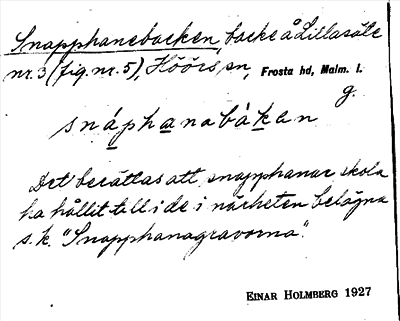 Snapphanebacken, backe å Lillasäte
nr. 3 (fig. nr. 5), Höörs sn, Frosta hd, Malm. l.
g.
snáphanabàkan
Det berättas att snapphanar skola
ha hållit till i de i närheten belägna
s.k. "Snapphanagravorna".
EINAR HOLMBERG 1927